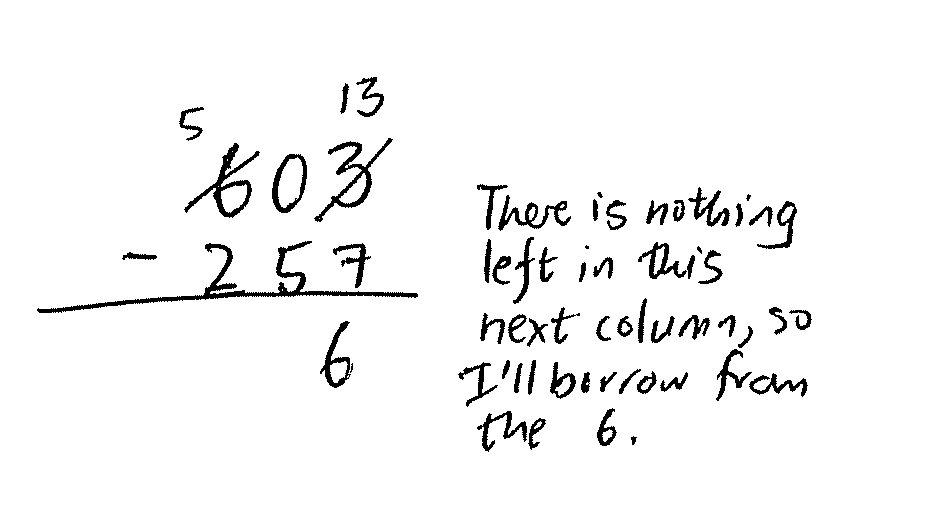 5 13
603
- 257
6
There is nothing
left in this
next column, so
I'll borrow from
the 6.